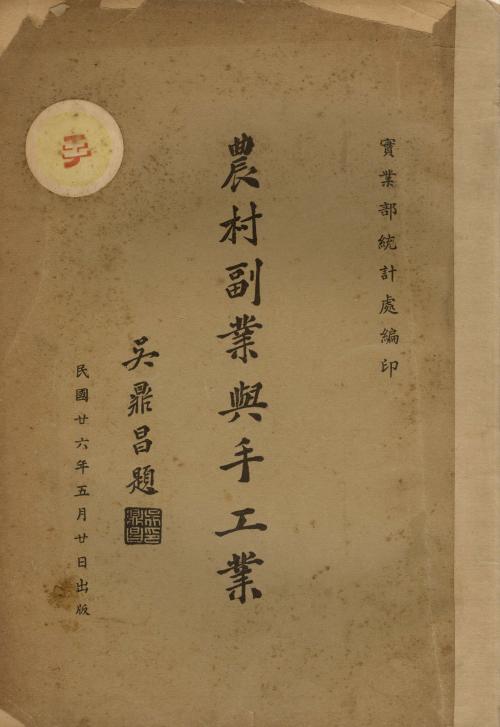 實業部統計處編印
農村副業與手工業
吳鼎昌題
吳鼎昌印
民國廿六年五月廿日出版